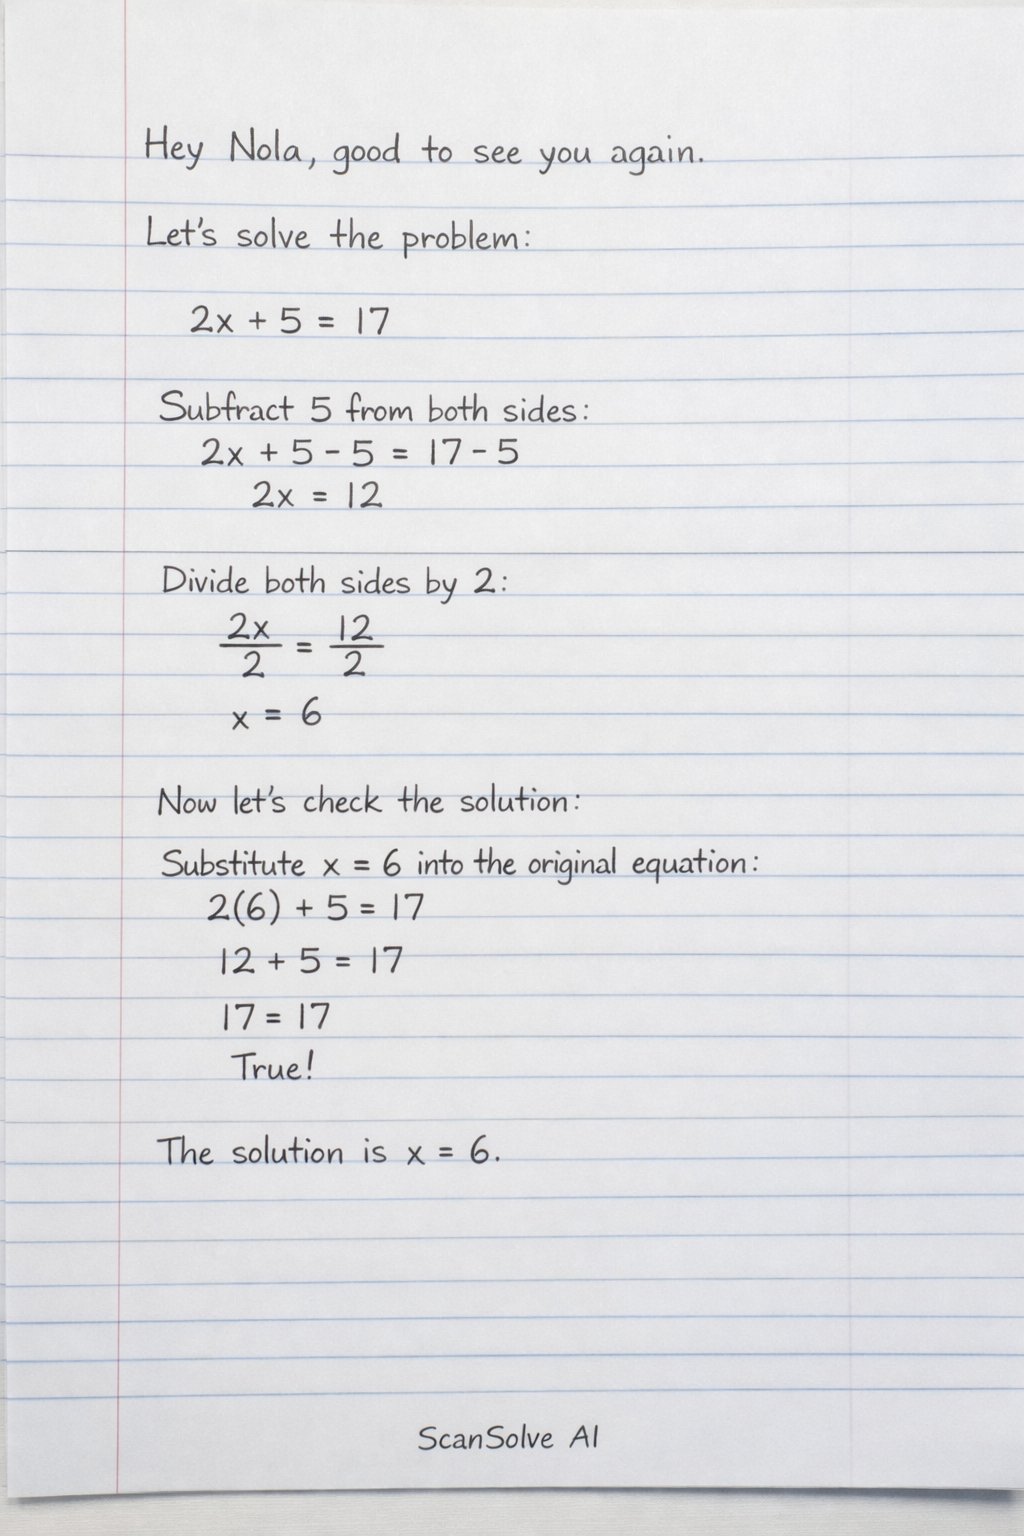 Hey Nola, good to see you again.
Let's solve the problem:
2x + 5 = 17
Subfract 5 from both sides:
2x + 5 - 5 = 17 - 5
2x = 12
Divide both sides by 2:
2x/2 = 12/2
x = 6
Now let's check the solution:
Substitute x = 6 into the original equation:
2(6) + 5 = 17
12 + 5 = 17
17 = 17
True!
The solution is x = 6.
ScanSolve AI